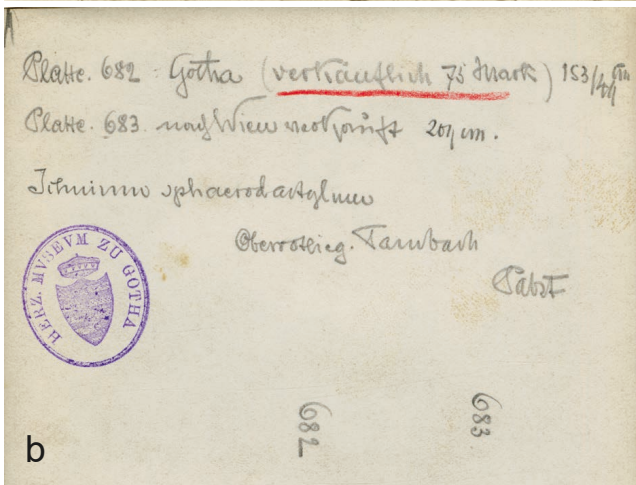 Platte. 682 Gotha (verkäuflich 75 Mark) 153/44 cm
Platte. 683. nach Wien verkauft 201 cm.
Ichnium sphaerodactylum
Oberrotlieg. Tambach
Pabst
HERZ. MVSEVM ZU GOTHA
682
683
b